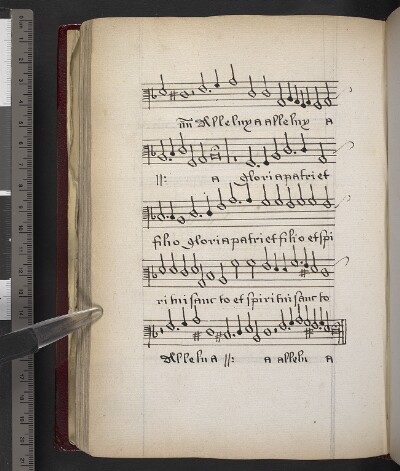 Alleluya alleluy a
a gloria patri et
filio gloria patri et filio et spi
ritui sanc to et spiritui sanc to
Allelu a a allelu a